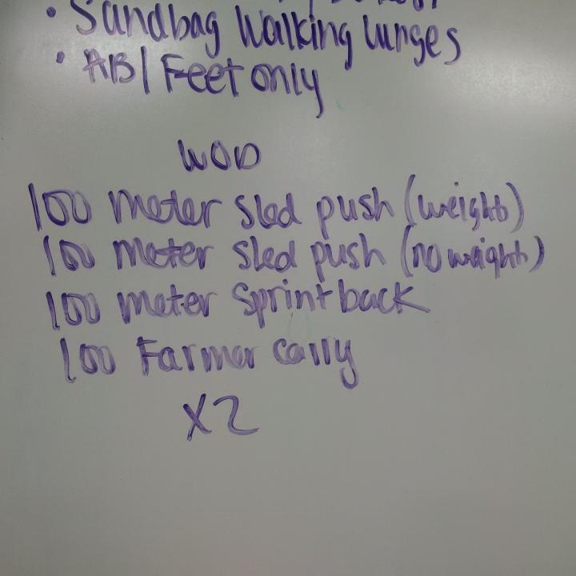 • Sandbag Walking Lunges
• AB/Feet only
WOD
100 meter sled push (weight)
100 meter sled push (no weight)
100 meter Sprint back
100 Farmer carry
X2